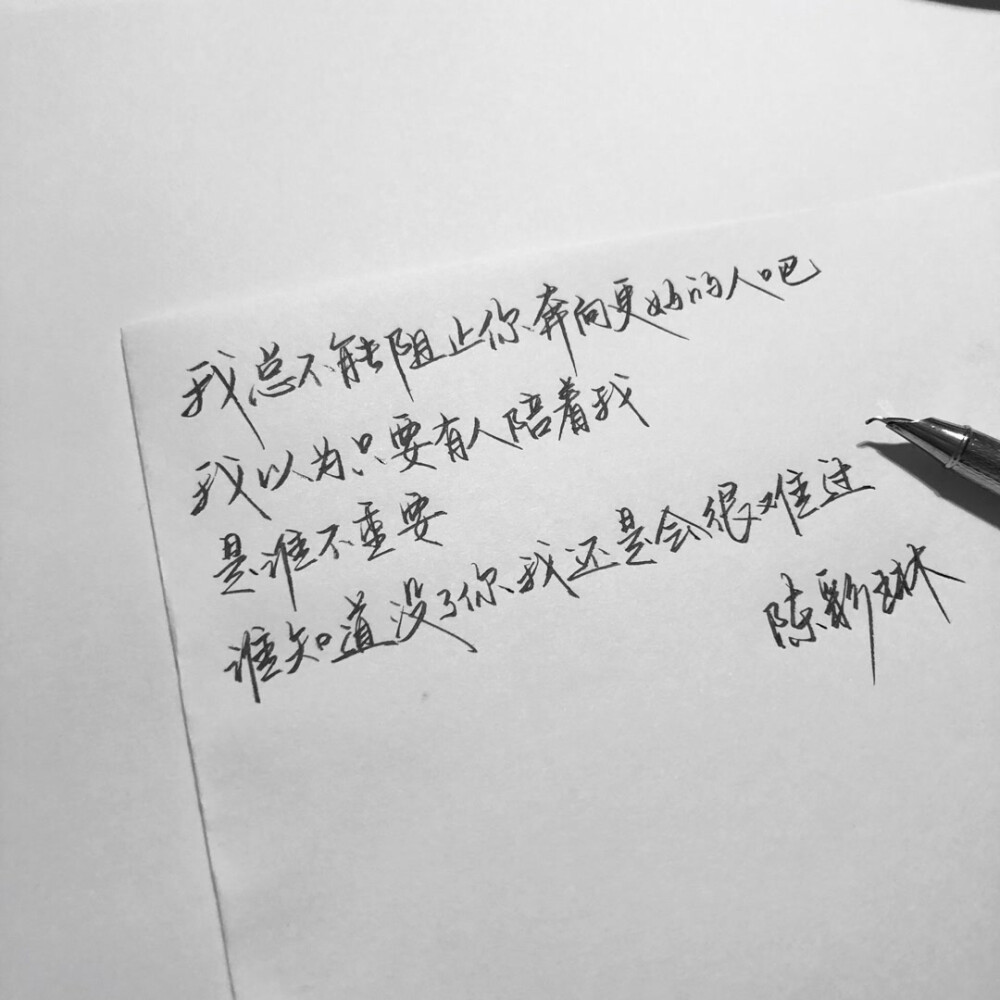 我总不能阻止你奔向更好的人吧
我以为只要有人陪着我
是谁不重要
谁知道没了你我还是会很难过
陈彩琳